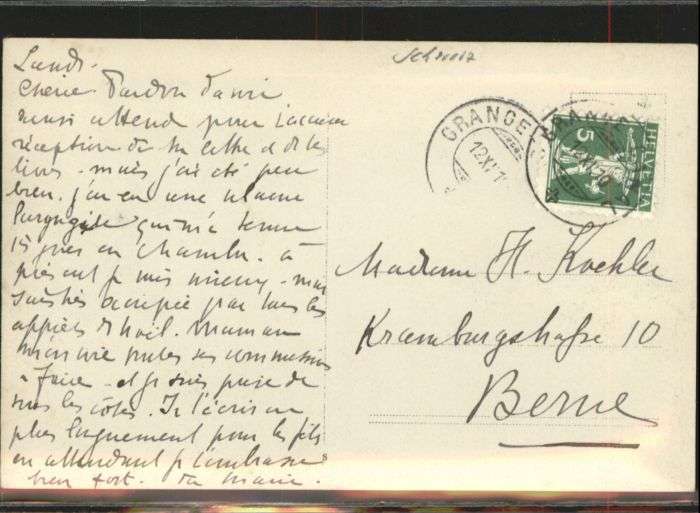 Lundi.
Chérie. Pardon d'avoir
aussi attend pour t'accuser
réception de ta lettre et de tes
livres. mais j'ai été peu
bien. j'ai eu une vilaine
laryngite qui m'a tenue
15 jours en chambre. à
présent je vais mieux. mais
suis très occupée par tous les
apprêts de Noël. Maman
m'envoie toutes ses commissions
à faire. et je suis prise de
tous les côtés. Je t'écrirai
plus longuement pour les fêtes
en attendant je t'embrasse
bien fort. ta Marie.
Schweiz
GRANGE
12.XI.1
HELVETIA
5
Madame H. Koehler
Kramburgstraße 10
Berne